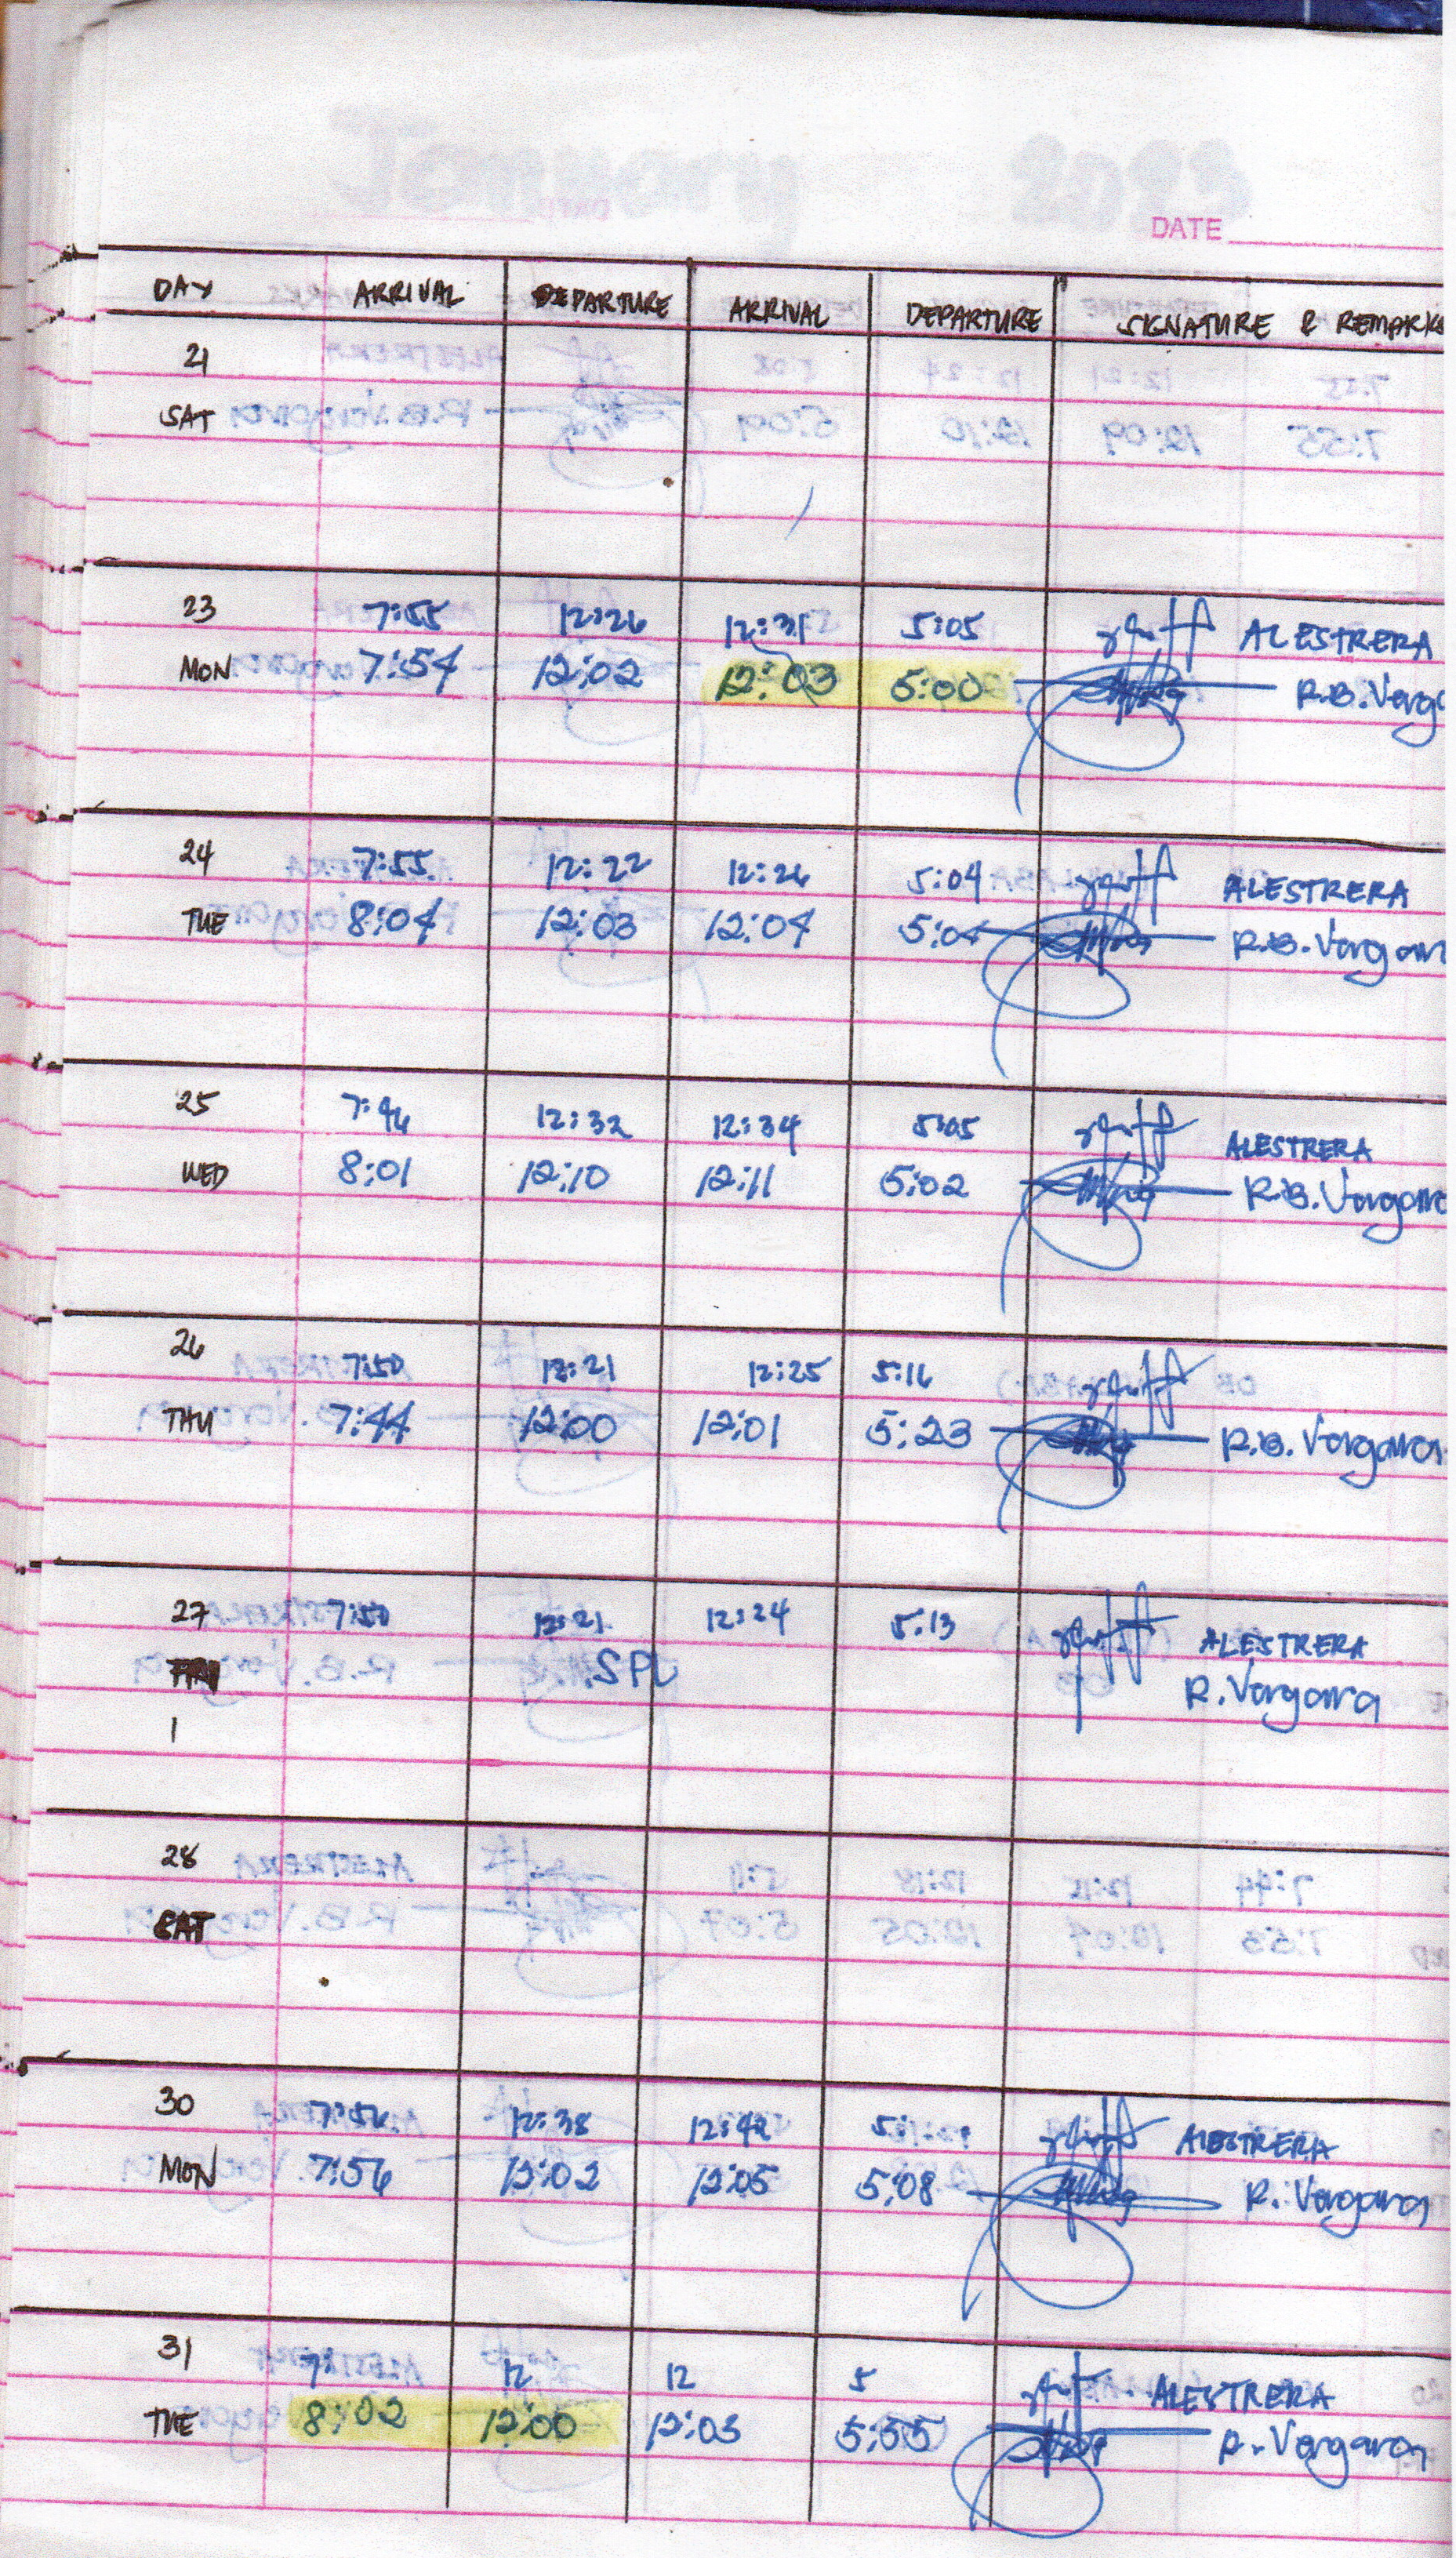 DATE
DAY ARRIVAL DEPARTURE ARRIVAL DEPARTURE SIGNATURE & REMARK
21
SAT
23 7:55 12:26 12:31 5:05 ALESTRERA
MON 7:54 12:02 12:03 5:00 R.B. Verg
24 7:55 12:22 12:26 5:04 ALESTRERA
TUE 8:04 12:03 12:04 5:04 R.B. Vergar
25 7:46 12:32 12:34 5:05 ALESTRERA
WED 8:01 12:10 12:11 5:02 R.B. Vergara
26 7:50 12:21 12:25 5:16
THU 7:44 12:00 12:01 5:23 R.B. Vergara
27 7:50 12:21 12:24 5:13 ALESTRERA
FRI SPL R. Vergara
1
28
SAT
30 7:56 12:38 12:42 5: ALESTRERA
MON 7:56 12:02 12:05 5:08 R. Vergara
31 7: 12 12 5 ALESTRERA
TUE 8:02 12:00 12:03 5:55 R. Vergara